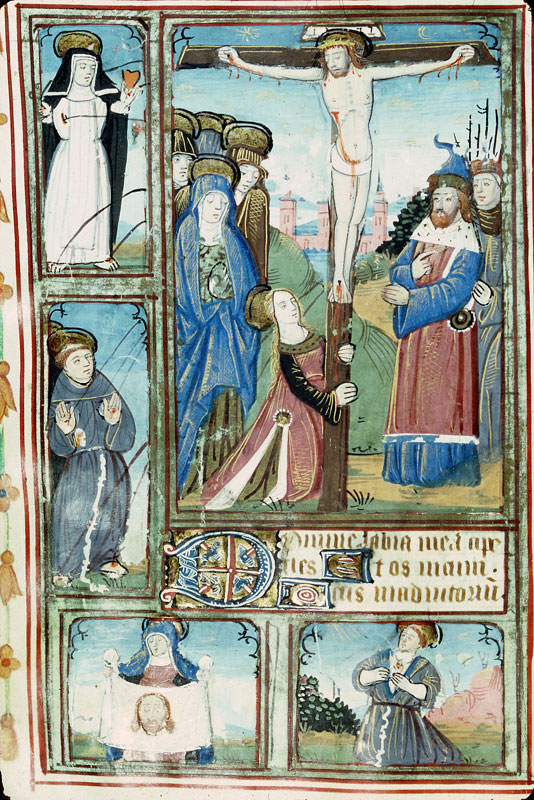 Domine labia mea ape
ries Et os meum.
Deus in adiutoriū